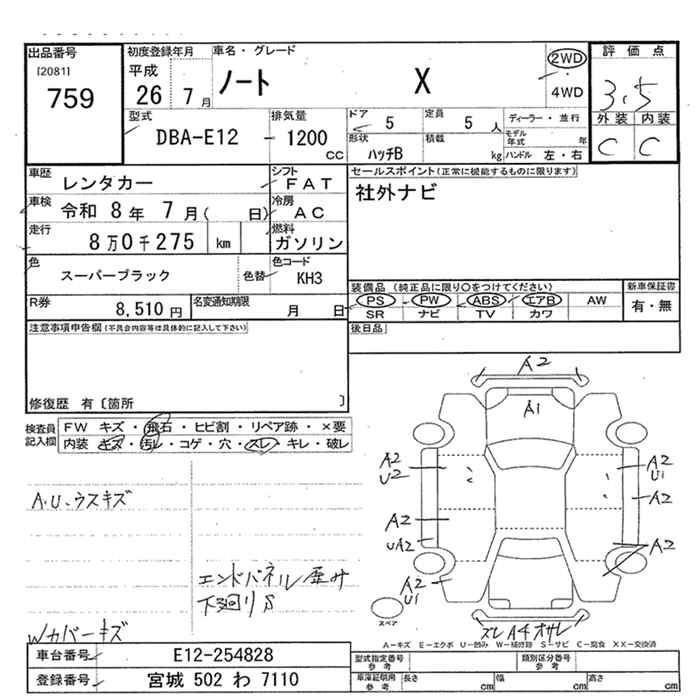 出品番号
[2081]
759
初度登録年月
平成
26年 7月
車名・グレード
ノート X
2WD
4WD
評価点
3.5
外装 内装
C C
型式
DBA-E12
排気量
1200
CC
ドア
5
定員
5 人
形状
ハッチB
積載
kg
ディーラー・並行
モデル年式 年
ハンドル 左・右
車歴
レンタカー
シフト
FAT
車検
令和 8年 7月( 日)
冷房
AC
走行
8万0千275 km
燃料
ガソリン
色
スーパーブラック
色替
色コード
KH3
R券
8,510円
名変通知期限
月 日
注意事項申告欄(不具合内容等は具体的に記入して下さい)
修復歴 有〔箇所 〕
セールスポイント(正常に機能するものに限ります)
社外ナビ
装備品(純正品に限り○をつけてください)
新車保証書
PS PW ABS エアB AW
有・無
SR ナビ TV カワ
後日品
検査員記入欄
FW キズ・飛石・ヒビ割・リペア跡・×要
内装 キズ・汚レ・コゲ・穴・スレ・キレ・破レ
A.U.ウスキズ
エンドパネル歪み
下廻りS
Wカバーキズ
A2
A1
A2
U2
A2
U1
A2
A2
UA2
A2
A2
U1
スペア
ズレ A4 オサレ
A−キズ E−エクボ U−凹み W−補修跡 S−サビ C−腐食 XX−交換済
車台番号
E12-254828
登録番号
宮城 502 わ 7110
型式指定番号
参考
類別区分番号
参考
車庫証明用
参考
長さ cm
幅 cm
高さ cm